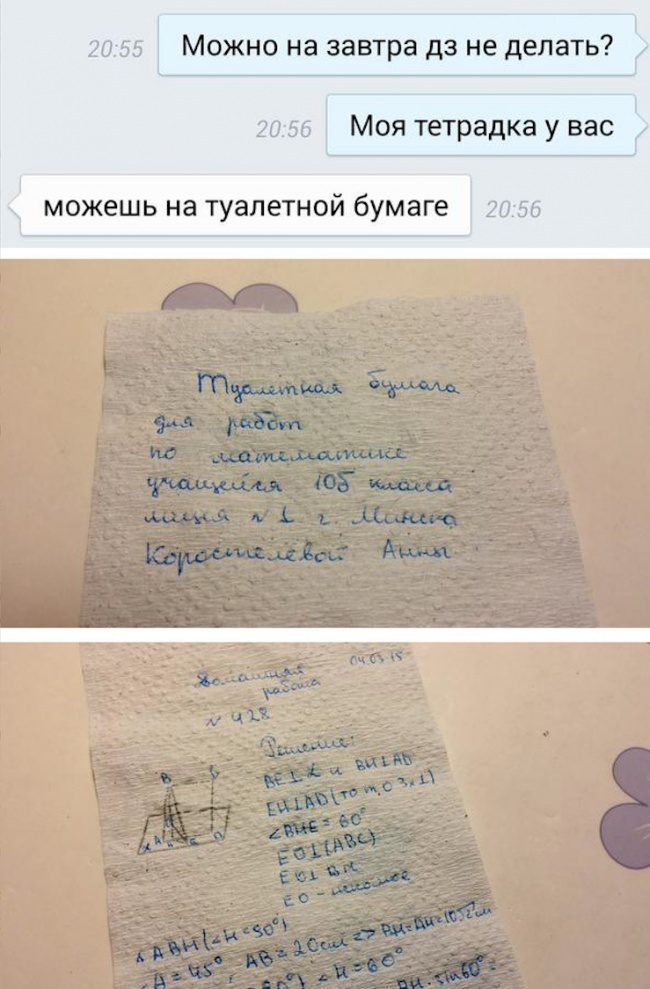 20:55 Можно на завтра дз не делать?
20:56 Моя тетрадка у вас
можешь на туалетной бумаге 20:56
Туалетная бумага
для работ
по математике
учащейся 10б класса
лицея №1 г. Минска
Коростелёвой Анны
Домашняя 04.03.15
работа
№ 428
Решение:
BE⊥α и BH⊥AD
EH⊥AD (то т, о 3х⊥)
∠BHE = 60°
EO⊥(ABC)
EO⊥BH
EO - искомое
ΔABH (∠H=90°)
∠A=45°, AB=20см => BH=AH=10√2см
∠H=60°
BH·sin60°=